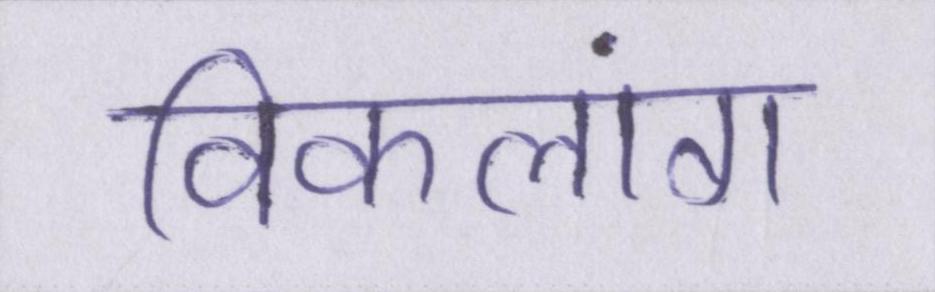 विकलांग